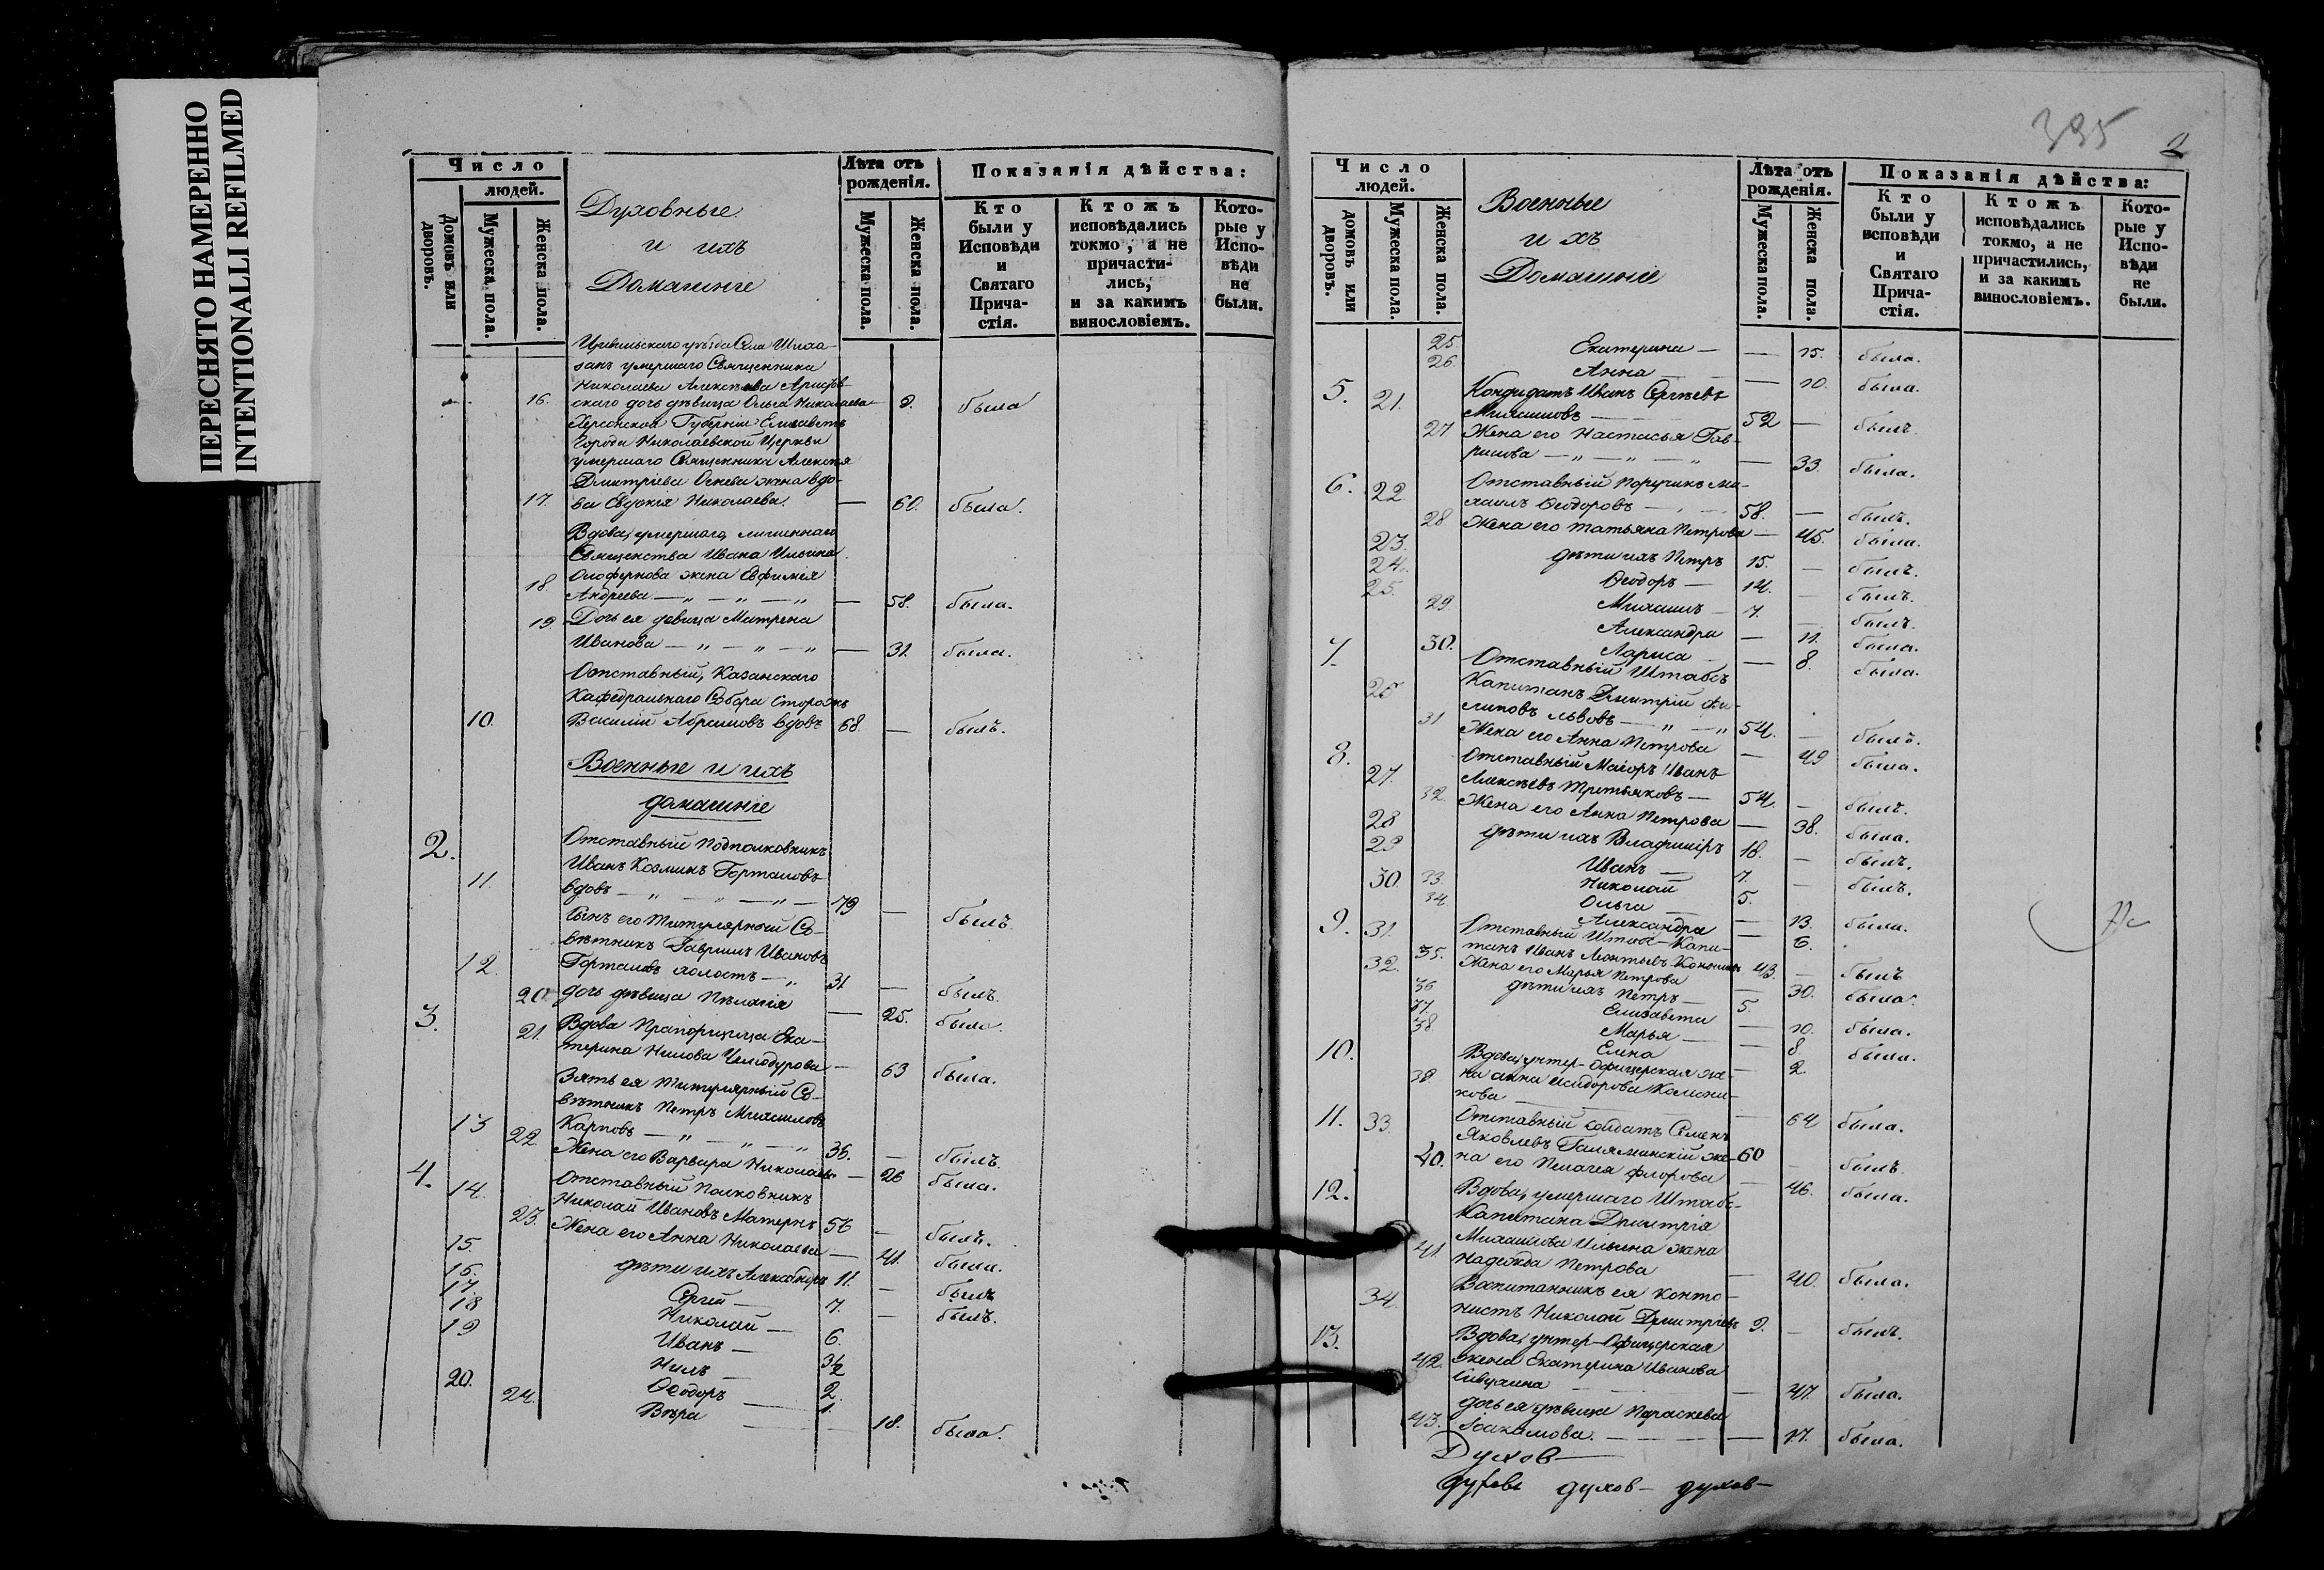 ПЕРЕСНЯТО НАМЕРЕННО
INTENTIONALLI REFILMED
Число
людей.
Домовъ или дворовъ.
Мужеска пола.
Женска пола.
Духовные
и ихъ
Домашніе
Лѣта отъ рожденія.
Мужеска пола.
Женска пола.
Показанія дѣйства:
Кто были у Исповѣди и Святаго Причастія.
Ктожъ исповѣдались токмо, а не причастились, и за какимъ винословіемъ.
Которые у Исповѣди не были.
Цивильскаго уѣзда Села
умершаго Священника
Николаева Алексѣева
16. скаго дочь дѣвица Ольга Николаева 9. была
Херсонской Губерніи Елисавет
Города Николаевской Церкви
умершаго Священника Алексѣя
Дмитріева жена вдо-
17. ва Евдокія Николаева. — 60. была.
Вдова, умершаго, лишеннаго
Священства Ивана Ильина
18. Олофернова жена Евфимія
Андреева — „ — „ — „ — 58. была.
19. Дочь ея девица Матрена
Иванова — „ — „ — „ — 31. была.
Отставный, Казанскаго
Кафедральнаго Собора Сторожъ
10. Василій Абрамовъ вдовъ 68. — былъ.
Военные и ихъ
домашніе
2. Отставный Подполковникъ
Иванъ Козминъ Горталовъ
11. вдовъ — „ — „ — „ — 79 — былъ
Сынъ его Титулярный Со-
вѣтникъ Гавриилъ Ивановъ
12. Горталовъ холостъ — „ 31 — былъ.
20. дочь дѣвица Пелагія — 25. была.
3. 21. Вдова Прапорщица Ека-
терина Нилова Чемодурова — 63 была.
Зять ея Титулярный Со-
вѣтникъ Петръ Михайловъ
13 Карповъ — „ — „ — „ 36. — былъ.
22. Жена его Варвара Николаева — 26 была.
4. 14. Отставный Полковникъ
Николай Ивановъ Матернъ 56 — былъ.
23. Жена его Анна Николаева — 41. была.
15. дѣти ихъ Александръ 11. — былъ
16. Сергій — 7. — былъ.
17. Николай — 6.
18 Иванъ — 3½
19 Нилъ — 2.
20. Ѳеодоръ — 1.
24. Вѣра — 18. была.
395
2
Число
людей.
домовъ или дворовъ.
Мужеска пола.
Женска пола.
Военные
и хъ
Домашніе
Лѣта отъ рожденія.
Мужеска пола.
Женска пола.
Показанія дѣйства:
Кто были у исповѣди и Святаго Причастія.
Ктожъ исповѣдались токмо, а не причастились, и за какимъ винословіемъ.
Которые у Исповѣди не были.
25 Екатерина — — 15. была.
26. Анна — 10. была.
5. 21. Кондидатъ Иванъ Сергѣевъ
Михаиловъ — 52 — былъ
27 Жена его Настасья Гав-
рилова — „ — „ — „ — 33. была.
6. 22. Отставный Поручикъ Ми-
хаилъ Ѳеодоровъ — 58. — былъ.
28. Жена его Татьяна Петрова — 45. была.
23. дѣти ихъ Петръ 15. — былъ.
24. Ѳеодоръ — 14. — былъ.
25. Михаилъ — 7. — былъ.
29. Александра — 11. была.
30. Лариса — 8. была.
7. Отставный Штабсъ
26 Капитанъ Дмитрій Фи-
липовъ Львовъ — „ — „ 54. — былъ.
31 Жена его Анна Петрова — 49 была.
8. Отставный Маіоръ Иванъ
27. Алексѣевъ Третьяковъ — 54. — былъ.
32. Жена его Анна Петрова — 38. была.
28 дѣти ихъ Владиміръ 18. — былъ.
29 Иванъ — 7. — былъ.
30. Николай 5.
33. Ольга — 13. была.
34. Александра — 6.
9. 31. Отставный Штабс-Капи-
танъ Иванъ Леонтьевъ 43. — былъ
35. Жена его Марья Петрова — 30. была.
32. дѣти ихъ Петръ — 5.
36 Елизавета — 10. была.
37. Марья — 8. была.
38 Елена — 2.
10. Вдова, унтер-Офицерская же-
39. на анна исидорова
кова — 64 была.
11. 33. Отставный солдатъ Семенъ
Яковлевъ же- 60 — былъ.
40. на его Пелагея флорова — 46. была.
12. Вдова, умершаго Штабс-
Капитана Дмитрія
Михаилова Ильина жена
41. Надежда Петрова — 40. была.
Воспитанникъ ея канто-
34. нистъ Николай Дмитріевъ 9. — былъ.
13. Вдова, унтер-Офицерская
42. жена Екатерина Иванова
— 47. была.
дочь ея дѣвица Параскева
43. Іоакимова. — 17. была.
Духов—
духов духов— духов—